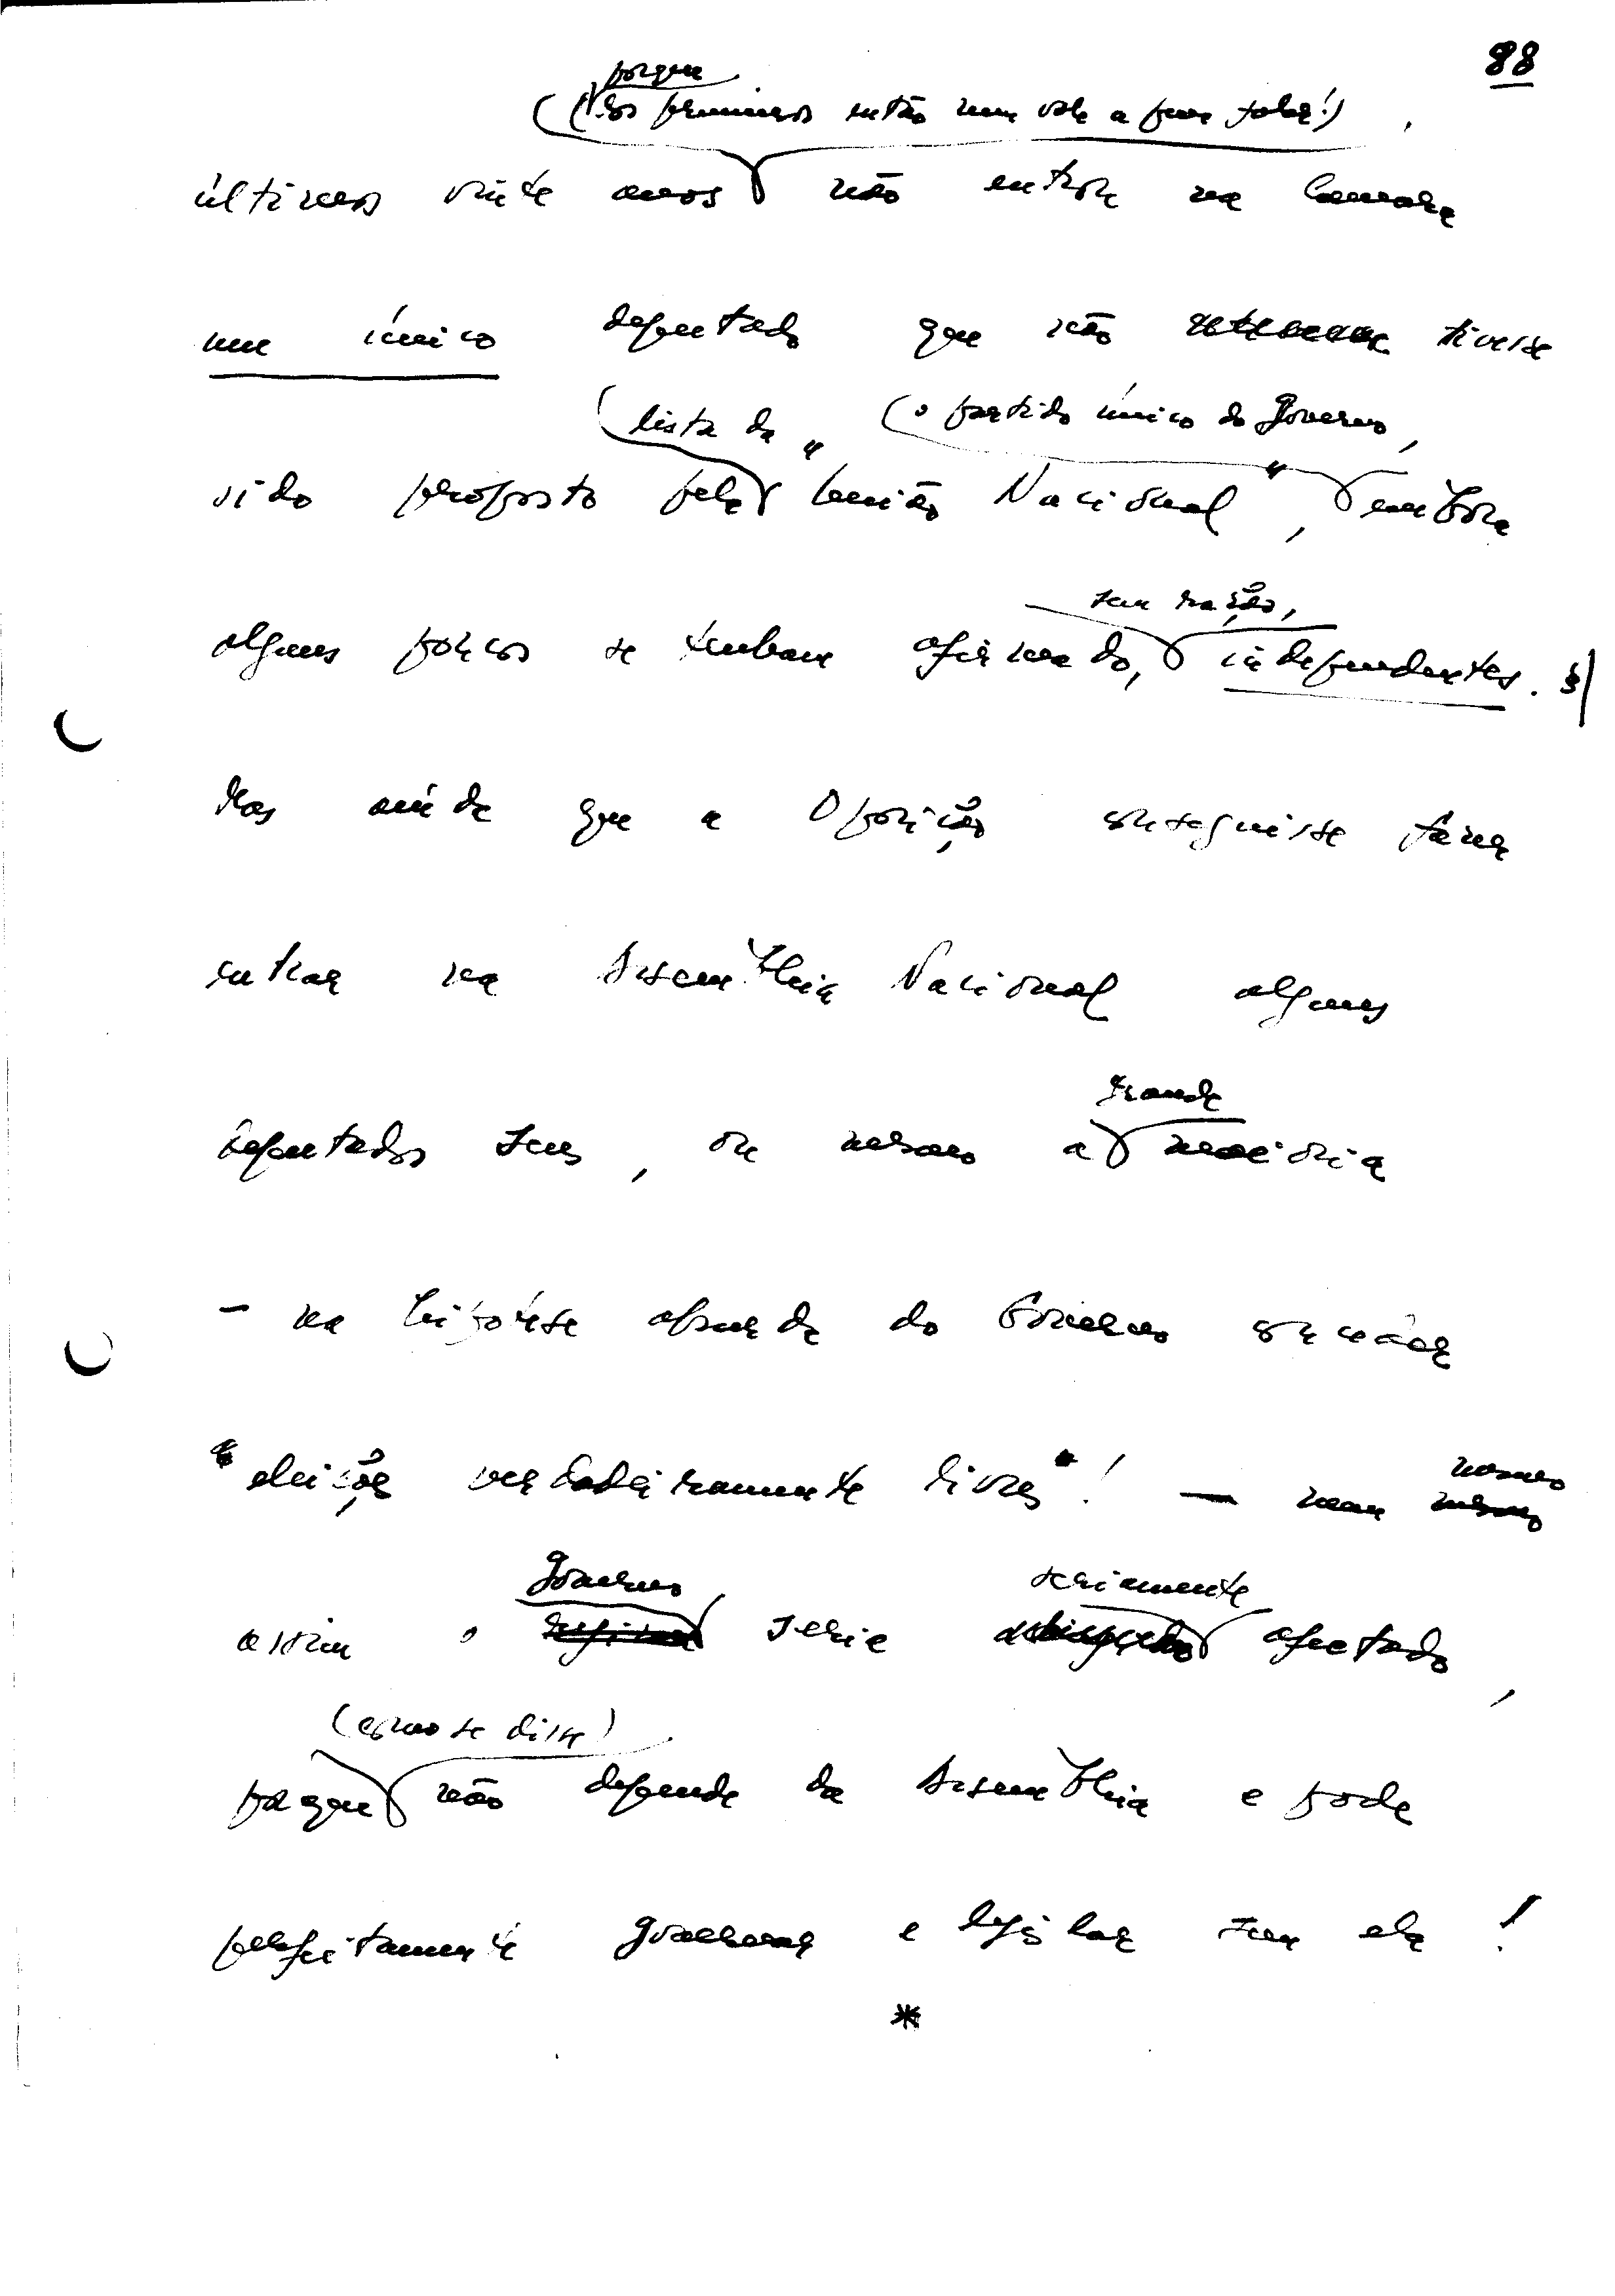 88
porque
(dos primeiros então nem vale a pena falar!)
últimos vinte anos não entrou na Camara
um único deputado que não tivesse
lista da (o partido único do Governo,
sido proposto pela "União Nacional", embora
sem razão,
alguns poucos se tenham afirmado, independentes. §
Mas ainda que a Oposição conseguisse fazer
entrar na Assembleia Nacional alguns
grande
deputados seus, ou mesmo a maioria
- na hipótese absurda do Governo
"eleições verdadeiramente livres"! — nem mesmo
mesmo
Governo seriamente
assim o regime seria afectado,
(como se disse)
porque não depende da Assembleia e pode
perfeitamente governar e legislar sem ela!
*